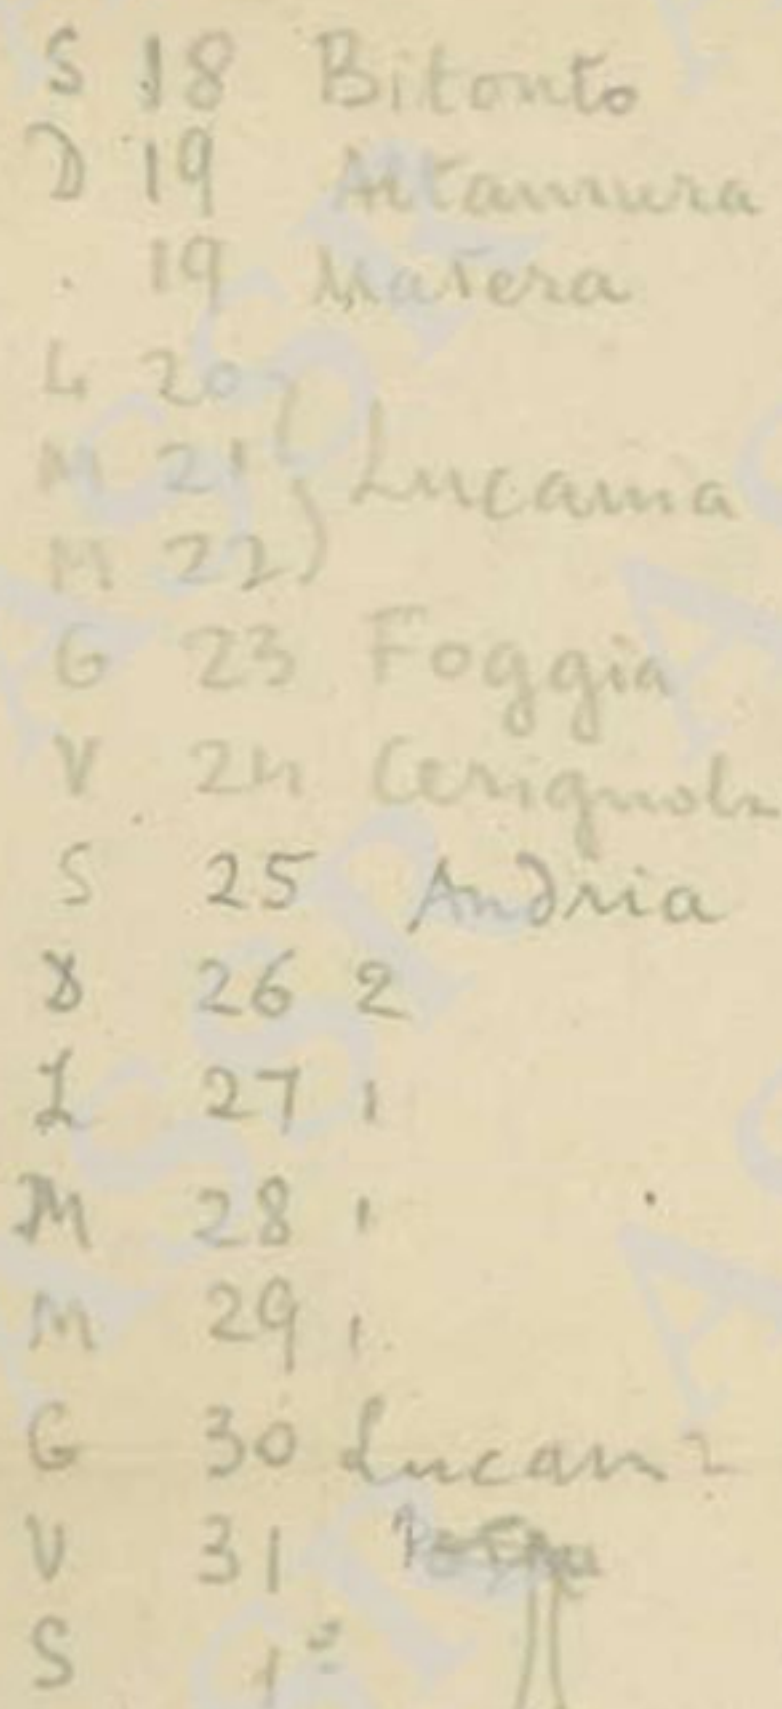 S 18 Bitonto
D 19 Altamura
. 19 Matera
L 20
M 21 Lucania
M 22
G 23 Foggia
V 24 Cerignola
S 25 Andria
D 26 2
L 27 1
M 28 1
M 29 1
G 30 Lucania
V 31
S 1°